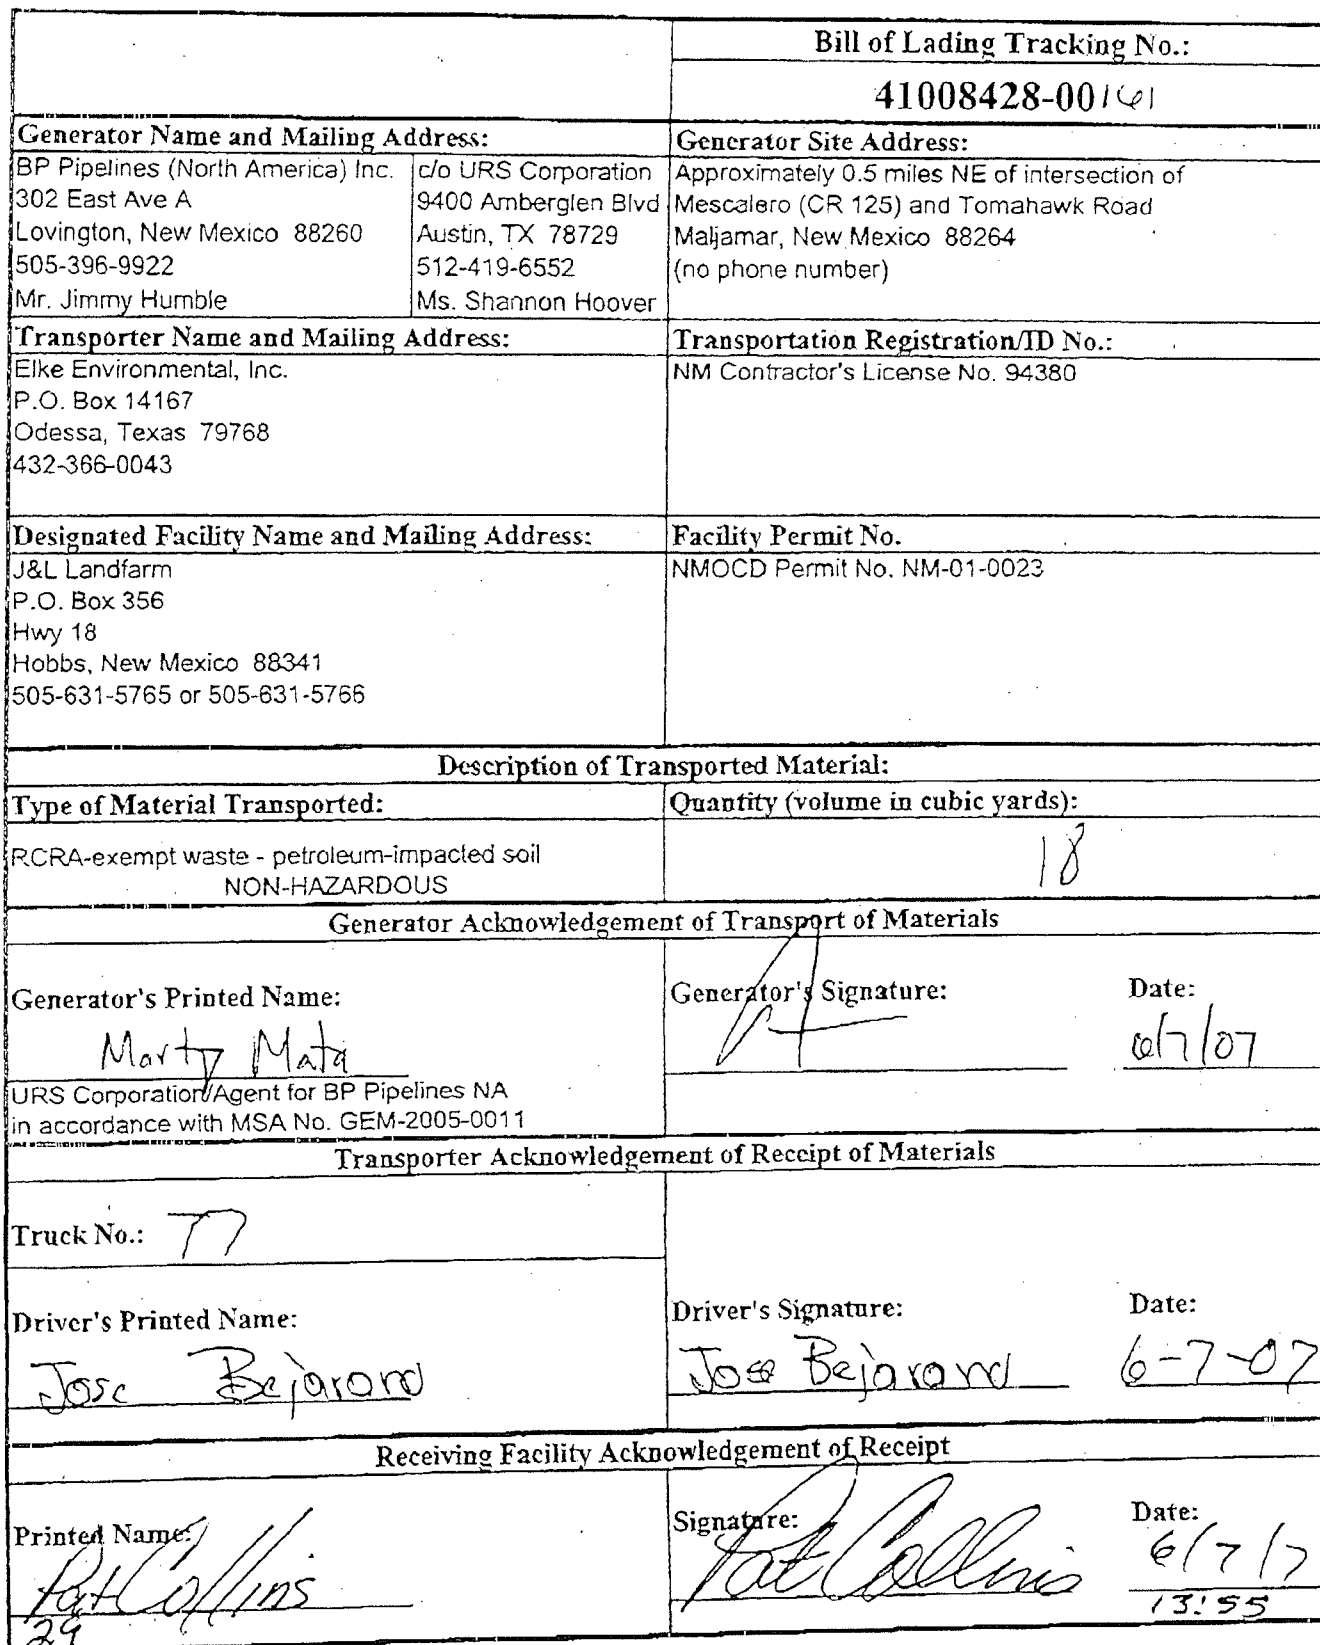 Bill of Lading Tracking No.:
41008428-00161
Generator Name and Mailing Address:
BP Pipelines (North America) Inc.
302 East Ave A
Lovington, New Mexico 88260
505-396-9922
Mr. Jimmy Humble
c/o URS Corporation
9400 Amberglen Blvd
Austin, TX 78729
512-419-6552
Ms. Shannon Hoover
Generator Site Address:
Approximately 0.5 miles NE of intersection of
Mescalero (CR 125) and Tomahawk Road
Maljamar, New Mexico 88264
(no phone number)
Transporter Name and Mailing Address:
Elke Environmental, Inc.
P.O. Box 14167
Odessa, Texas 79768
432-366-0043
Transportation Registration/ID No.:
NM Contractor's License No. 94380
Designated Facility Name and Mailing Address:
J&L Landfarm
P.O. Box 356
Hwy 18
Hobbs, New Mexico 88341
505-631-5765 or 505-631-5766
Facility Permit No.
NMOCD Permit No. NM-01-0023
Description of Transported Material:
Type of Material Transported:
RCRA-exempt waste - petroleum-impacted soil
NON-HAZARDOUS
Quantity (volume in cubic yards):
18
Generator Acknowledgement of Transport of Materials
Generator's Printed Name:
Marty Mata
URS Corporation/Agent for BP Pipelines NA
in accordance with MSA No. GEM-2005-0011
Generator's Signature:
Date:
6/7/07
Transporter Acknowledgement of Receipt of Materials
Truck No.: 77
Driver's Printed Name:
Jose Bejarano
Driver's Signature:
Jose Bejarano
Date:
6-7-07
Receiving Facility Acknowledgement of Receipt
Printed Name:
Pat Collins
29
Signature:
Pat Collins
Date:
6/7/7
13:55